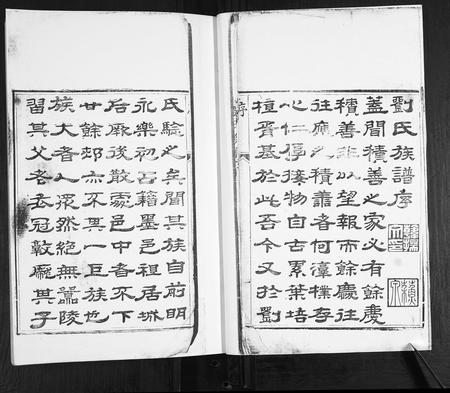 劉氏族譜序
蓋聞積善之家必有餘慶
積善非以望報而餘慶往
往應之積善者何渾樸存
心仁厚接物自古累葉培
植胥基於此吾今又於劉
序
氏驗之矣聞其族自前明
永樂初占籍墨邑祖居城
后厥後散處邑中者不下
廿餘邨亦不其一巨族也
族大者人眾然絕無囂陵
習其父老衣冠敦龐其子